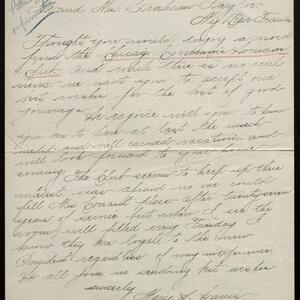 and Mrs. Graham Taylor.
My Dear Friends
Thought you would enjoy a word
from the Chicago Commons Woman's
Club. And which there is no real
news we want you to accept our
best wishes for the best of good
journeys.
We rejoice with you to know
you are to have at last the much
needed and well earned vacation and
will look forward to your home
coming.
The Club seems to keep up there
interest. was afraid no one could
fill Mrs. place after twenty seven
years of service but when I see the
room well filled every Tuesday
know they are loyall to the new
President regardless of my
We all join in sending best wishes
sincerely
Mary